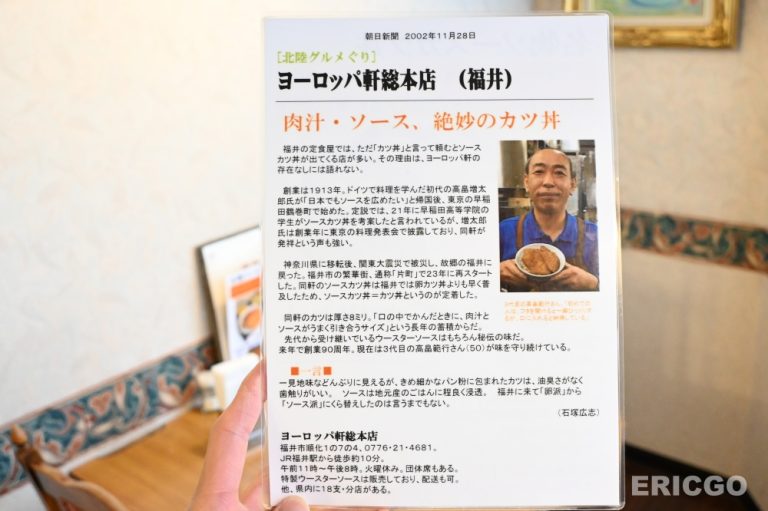 朝日新聞 2002年11月28日
[北陸グルメぐり]
ヨーロッパ軒総本店 （福井）
肉汁・ソース、絶妙のカツ丼
福井の定食屋では、ただ「カツ丼」と言って頼むとソース
カツ丼が出てくる店が多い。その理由は、ヨーロッパ軒の
存在なしには語れない。
創業は1913年。ドイツで料理を学んだ初代の高畠増太
郎氏が「日本でもソースを広めたい」と帰国後、東京の早稲
田鶴巻町で始めた。定説では、21年に早稲田高等学院の
学生がソースカツ丼を考案したと言われているが、増太郎
氏は創業年に東京の料理発表会で披露しており、同軒が
発祥という声も強い。
神奈川県に移転後、関東大震災で被災し、故郷の福井に
戻った。福井市の繁華街、通称「片町」で23年に再スタート
した。同軒のソースカツ丼は福井では卵カツ丼よりも早く普
及したため、ソースカツ丼＝カツ丼というのが定着した。
同軒のカツは厚さ8ミリ。「口の中でかんだときに、肉汁と
ソースがうまく引き合うサイズ」という長年の蓄積からだ。
先代から受け継いでいるウースターソースはもちろん秘伝の味だ。
来年で創業90周年。現在は3代目の高畠範行さん（50）が味を守り続けている。
3代目の高畠範行さん。「初めての
人は、フタを開けると一様びっくりす
るが、口に入れると納得している」
■一言■
一見地味などんぶりに見えるが、きめ細かなパン粉に包まれたカツは、油臭さがなく
歯触りがいい。 ソースは地元産のごはんに程良く浸透。 福井に来て「卵派」から
「ソース派」にくら替えしたのは言うまでもない。
（石塚広志）
ヨーロッパ軒総本店
福井市順化1の7の4、0776・21・4681。
JR福井駅から徒歩約10分。
午前11時～午後8時。火曜休み。団体席もある。
特製ウースターソースは販売しており、配送も可。
他、県内に18支・分店がある。
ERICGO